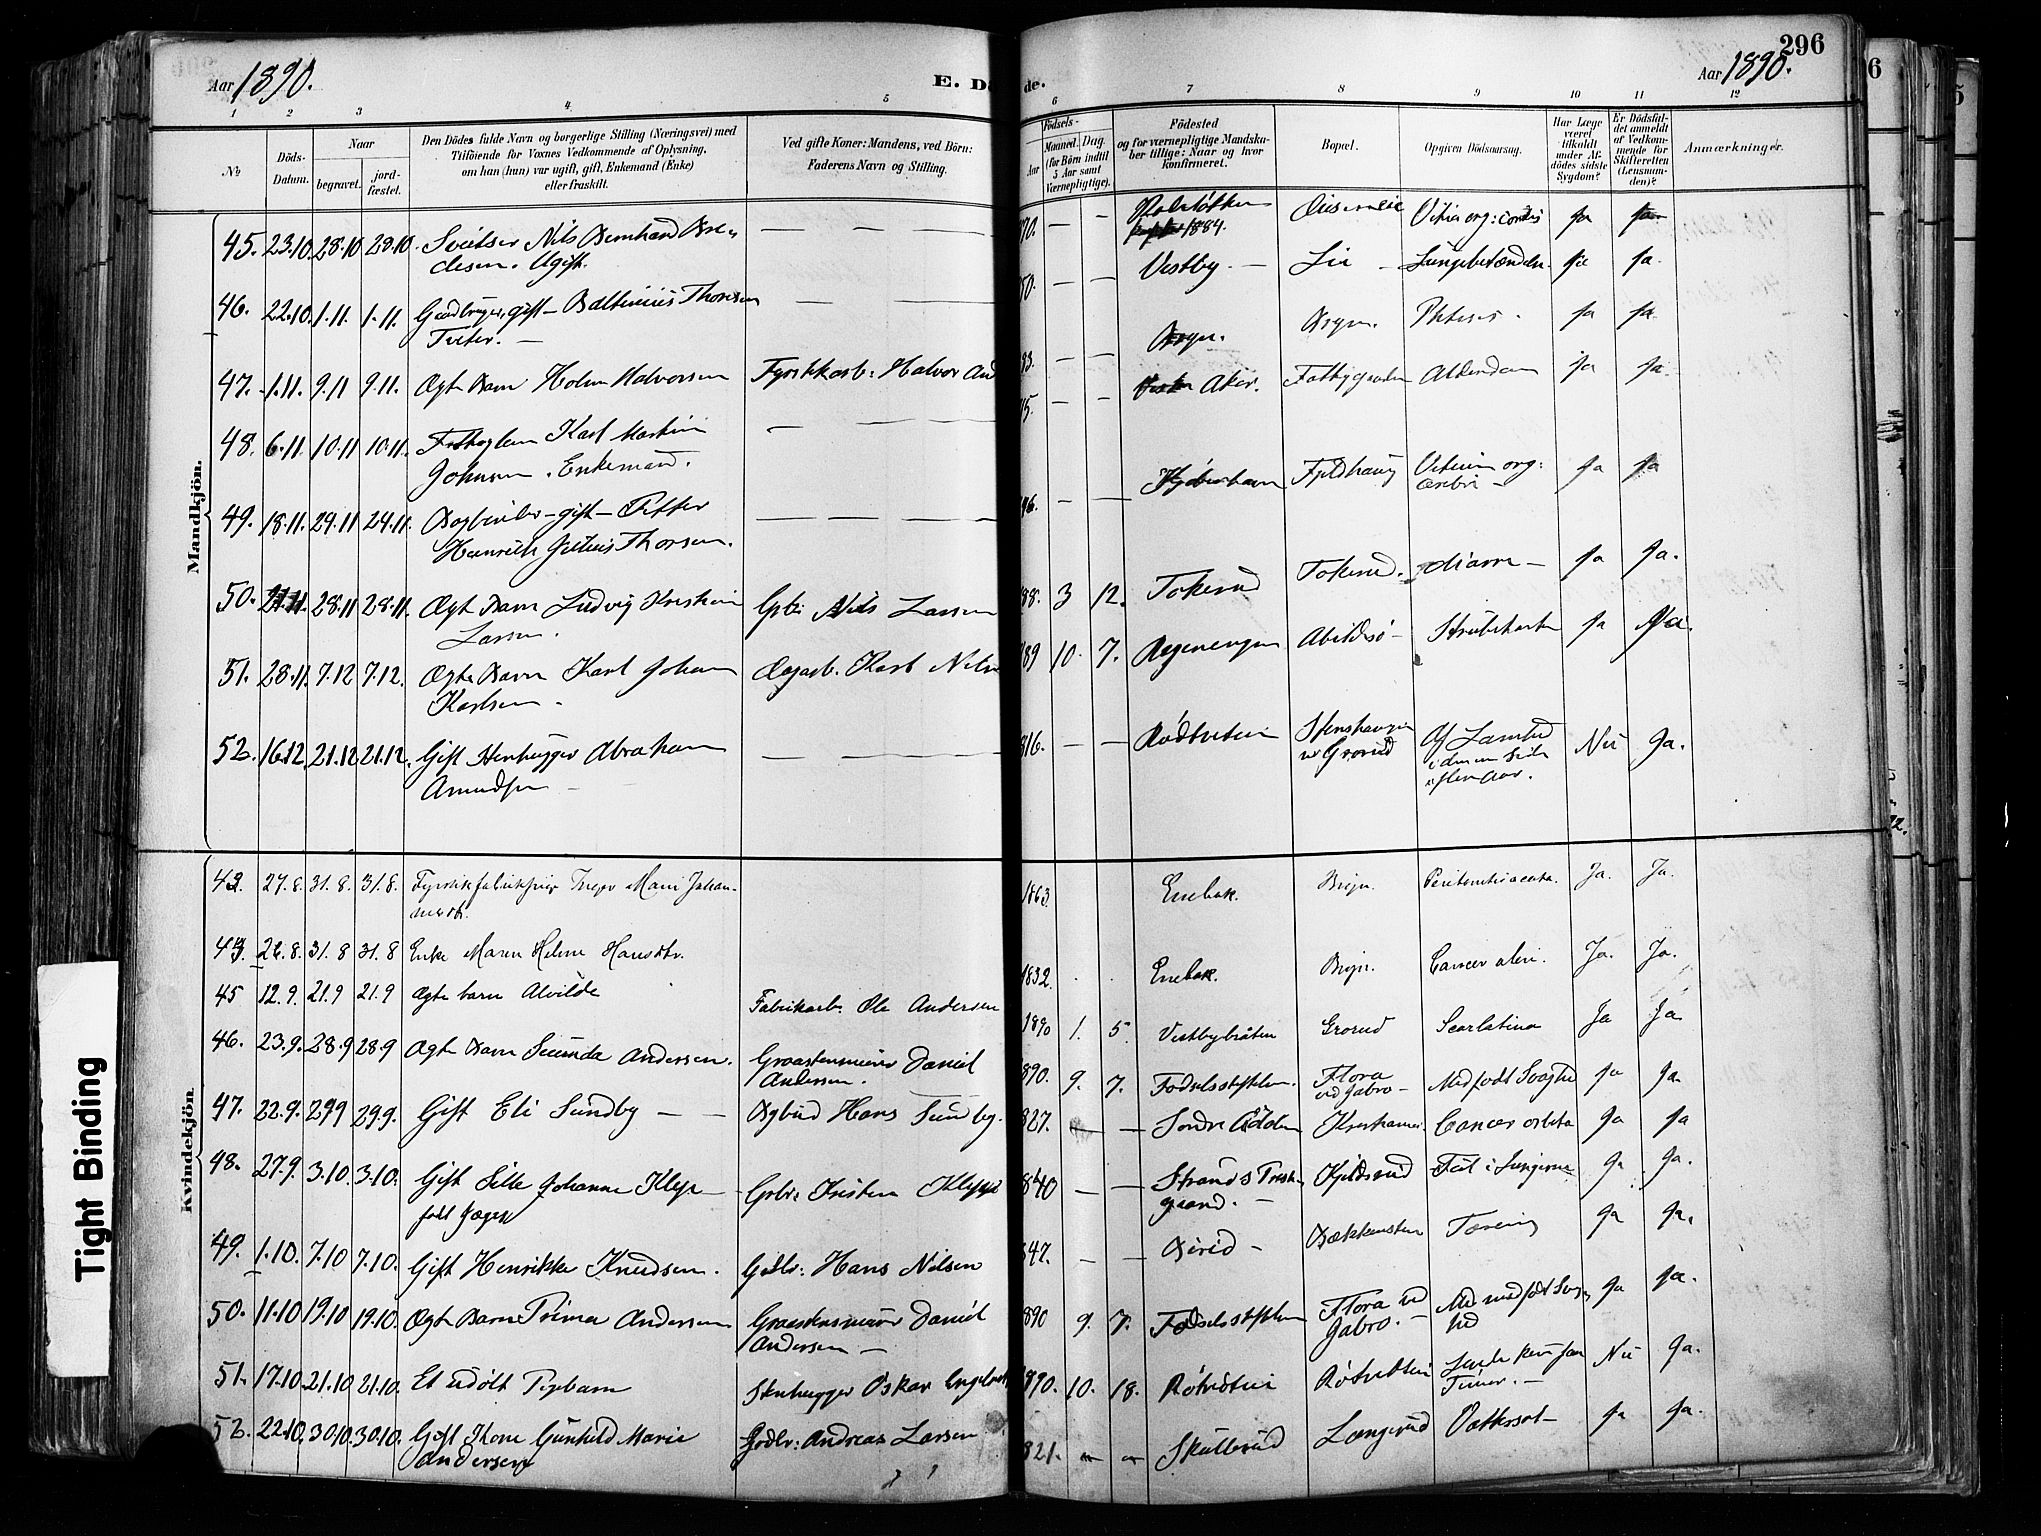 296
Aar 1890.
E. Dö
de.
Aar 1890.
1 2 3 4 5 6 7 8 9 10 11 12
№
Döds-Datum.
Naar
begravet.
jord-fæstet.
Den Dödes fulde Navn og borgerlige Stilling (Næringsvei) med
Tilföiende for Voxnes Vedkommende af Oplysning,
om han (hun) var ugift, gift, Enkemand (Enke)
eller fraskilt.
Ved gifte Koner: Mandens, ved Börn:
Faderens Navn og Stilling.
Födsels-
Aar
Maaned. Dag.
(for Börn indtil
5 Aar samt
Værnepligtige).
Födested
og for værnepligtige Mandska-
ber tillige: Naar og hvor
konfirmeret.
Bopæl.
Opgiven Dödsaarsag.
Har Læge
været
tilkaldt
under Af-
dödes sidste
Sygdom?
Er Dödsfal-
det anmeldt
af Vedkom-
mende for
Skifteretten
(Lensman-
den)?
Anmærkninger.
Mandkjön.
45. 23.10. 28.10 28.10. Sveitser Nils Bernhard
Ugift. 70. — — 1884. Vitium org: cordis ja ja
46. 22.10. 1.11. 1.11. Gaardbruger, gift — Baltinius Thoresen
Tveter. — 50. — — Vestby — Lie — Lungebetændelse ja ja
47. 1.11. 9.11 9.11. Ægte Barn Holm Halvorsen Fyrstikarb: Halvor And 83. — — Bryn. Bryn. Phtisis. ja ja
48. 6.11 10.11 10.11. Fattiglem Karl Martin
Johnsen. Enkemand. 15. — — Aker. Fattiggaarden Alderdom ja ja.
49. 18.11. 24.11 24.11. Bogbinder — gift — Petter
Heinrich Julius Thorsen. 46. — — Kjøbenhavn Fjeldhaug Vitium org:
cordis — ja ja
50. 21.11. 28.11 28.11. Ægte Barn Ludvig Kristian
Larsen. Gbr: Nils Larsen 88. 3 12. Tokerud Tokerud. diarre — ja ja.
51. 28.11. 7.12 7.12. Ægte Barn Karl Johan
Karlsen — Dagarb. Karl Nilsen 89 10. 7. Abildsø — Strubehoste ja Ja.
52. 16.12. 21.12 21.12. Gift Stenhugger Abraham
Amundsen — 816. — — Rødtvetein Stenshaugen
v Grorud Af Lamhed
i den ene Side
i flere Aar. Nei Ja.
Kvindekjön.
43. 27.8. 31.8. 31.8. Inger Marie Johan-
nesdt. 1863. Enebak. Bryn. Peritonitis acuta. Ja. Ja.
44. 26.8. 31.8 31.8 Enke Maren Helene Hansdtr. 1832. Enebak. Bryn. Cancer uteri. Ja. Ja.
45 12.9. 21.9 21.9 Ægte barn Alvilde Fabrikarb. Ole Andersen 1890 1. 5. Vestbybråten Grorud Scarlatina Ja Ja.
46. 23.9. 28.9 28.9 Ægte Barn Secunda Andersen. Graastensminør Daniel
Andersen. 890. 9. 7. Fødselsstiftelsen. Flora
ved Jabro — Medfødt Svaghed ja ja.
47. 22.9. 29.9 29.9. Gift Eli Sundby — — Bybud Hans Sundby. 827. — — Søndre Odalen Kristiania. Cancer orbita ja ja
48. 27.9. 3.10. 3.10. Gift Sille Johanne Klepp —
født Jæger Gbr: Kristen Klepp 840 — — Strands Præste-
gjeld. — Kjeldsrud Fat i Lungerne ja ja.
49. 1.10. 7.10 7.10. Gift Henrikke Knudsen. Gdbr: Hans Nilsen 847. — — Birid — Bækkensten Tæring ja ja.
50. 11.10 19.10 19.10. Ægte Barn Prima Andersen Graastensminør Daniel
Andersen — 890 9. 7. Fødselsstiftelsen Flora ved
Jabro. — Med medfødt Svag-
hed ja ja.
51. 17.10. 21.10 21.10. Et udøbt Pigebarn Stenhugger Oskar Engebret 890. 10. 18. Røtvetein Røtvetein Levede kun faa
Timer. — Nei Ja.
52. 22.10. 30.10. 30.10. Gift Kone Gunhild Marie
Andersen Gdbr: Andreas Larsen 821. — — Skullerud Langerud Vattersot — ja ja.
Tight Binding